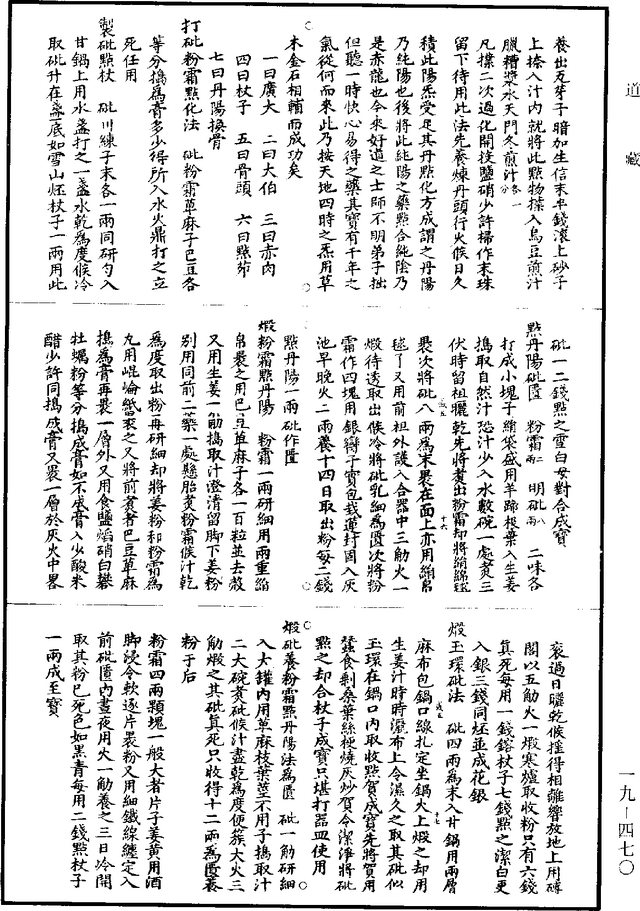 道藏
養出五芽子暗加生信末半錢滾上砂子
上捺入汁內就將此點物㩇入烏豆煎汁
臘糟漿水天門冬煎汁各一分
凡㩇二次過化開投鹽硝少許掃作末珠
留下待用此法先養煉丹頭行火候日久
積此陽炁受足其丹點化方成謂之丹陽
乃純陽也後將此純陽之藥點合純陰乃
是赤龍也今來好道之士師不明弟子拙
但聽一時快心易得之藥其寶有千年之
氣從何而來此乃按天地四時之炁用草
木金石相輔而成功矣
一曰廣大 二曰大伯 三曰赤肉
四曰杖子 五曰骨頭 六曰點茆
七曰丹陽換骨
打砒粉霜點化法 砒粉霜萆麻子巴豆各
等分搗爲膏多少得所入水火鼎打之立
死任用
製砒點杖 砒川練子末各一兩同研勺入
甘鍋上用水盞打之一盞水乾爲度候冷
取砒升在盞底如雪山烓杖子一兩用此
砒一二錢點之雪白母對合成寶
點丹陽砒匱 粉霜二兩 明砒八兩 二味各
打成小塊子綿袋盛用羊蹄根葉入生姜
搗取自然汁恐汁少入水數碗一處煮三
伏時留柤曬乾先將煮出粉霜却將綿綿逐
裹次將砒八兩爲末裹在面上亦用綿帛
毬了又用前柤外護入合器中三觔火一
煅待透取出候冷將砒乳細爲匱次將粉
霜作四塊用銀䥥子實包裁蓮封固入灰
池早晚火二兩養十四日取出粉每二錢
點丹陽一兩砒作匱
煅粉霜點丹陽 粉霜一兩研細用兩重綿
帛裹之用巴豆萆麻子各一百粒並去殼
又用生姜一觔搗取汁澄清留脚下姜粉
別用同前二藥一處縣胎煮粉霜候汁乾
爲度取出粉再研細却將姜粉和粉霜爲
丸用崐崘䉤裹之又將前煮者巴豆萆麻
搗爲膏再裹一層外又用食鹽焰硝白礬
牡蠣粉等分搗成膏如不成膏入少酸米
醋少許同搗成膏又裹一層於灰火中畧
衮過日曬乾候撞得相離響放地上用磚
閣以五觔火一煅寒爐取收粉只有六錢
眞死每用一錢鎔杖子七錢點之潔白更
入銀三錢同烓並成花銀
煅玉環砒法 砒四兩爲末入甘鍋用兩層
麻布包鍋口線扎定坐鍋火上煅之却用
生姜汁時時灑布上令濕久之取其砒似
玉環在鍋口內取收點賀成寶先將賀用
蠶食剩桑葉絲梗燒灰炒賀令潔淨將砒
點之却合杖子成寶只堪打器皿使用
煅砒養粉霜點丹陽法爲匱 砒一觔研細
入大罐內用萆麻枝葉莖不用子搗取汁
二大碗煮砒候汁盡乾爲度便簇大火三
觔煅之其砒眞死只收得十二兩爲匱養
粉于后
粉霜四兩顆塊一般大者片子姜黃用酒
脚浸令軟逐片裹粉又用細鐵線纏定入
前砒匱內晝夜用火一觔養之三日冷開
取其粉已死色如黑青每用二錢點杖子
一兩成至寶
一九—四七〇